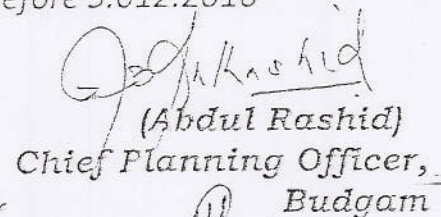 efore 5.012.2016
Rashid
(Abdul Rashid)
Chief Planning Officer,
Budgam